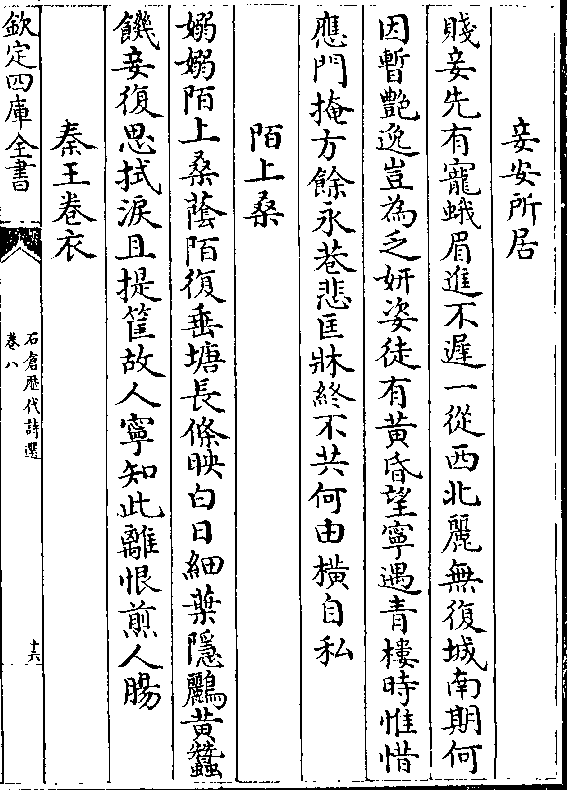 妾安所居
賤妾先有寵蛾眉進不遲一從西北麗無復城南期何
因暫艶逸豈為乏妍姿徒有黄昏望寧遇青樓時惟惜
應門掩方餘永巷悲匡牀終不共何由横自私
陌上桑
嫋嫋陌上桑䕃陌復垂塘長條映白日細葉隱鸝黄蠶
饑妾復思拭淚且提筐故人寧知此離恨煎人腸
秦王卷衣
欽定四庫全書
石倉歴代詩選
卷八
十六